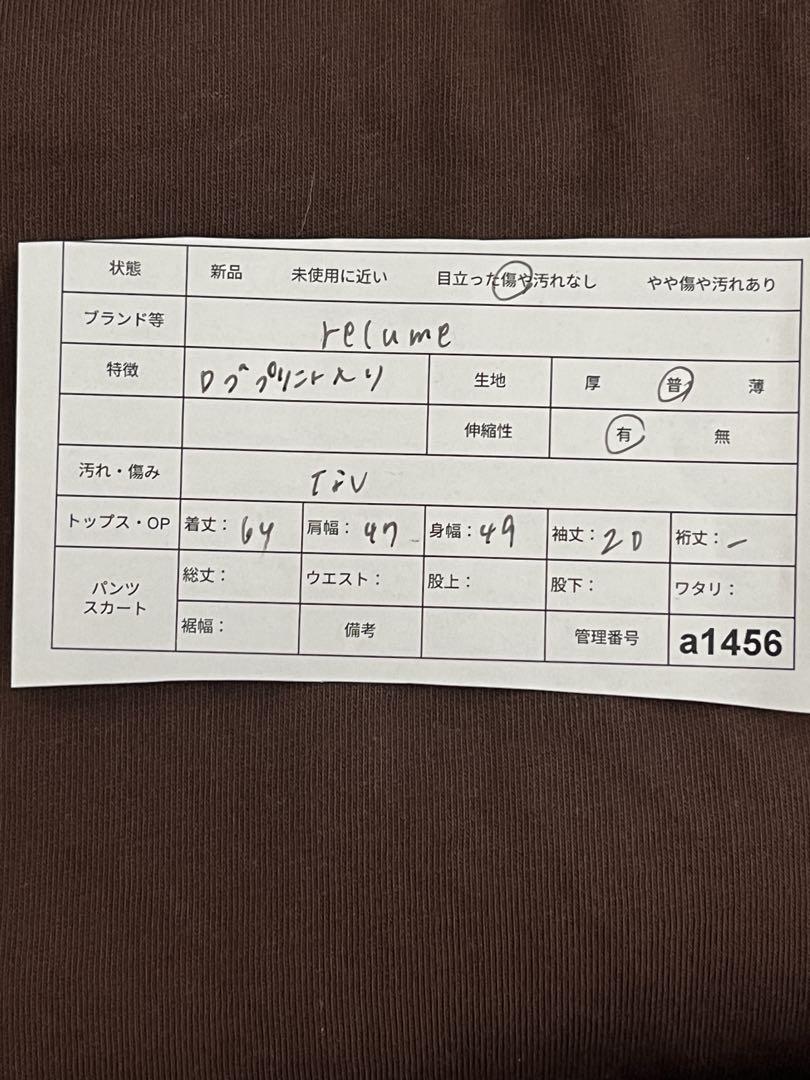 状態 新品 未使用に近い 目立った傷や汚れなし やや傷や汚れあり
ブランド等 relume
特徴 ロゴプリント入り 生地 厚 普 薄
伸縮性 有 無
汚れ・傷み なし
トップス・OP 着丈: 64 肩幅: 47 身幅: 49 袖丈: 20 裄丈: ー
パンツ スカート 総丈: ウエスト: 股上: 股下: ワタリ:
裾幅: 備考 管理番号 a1456